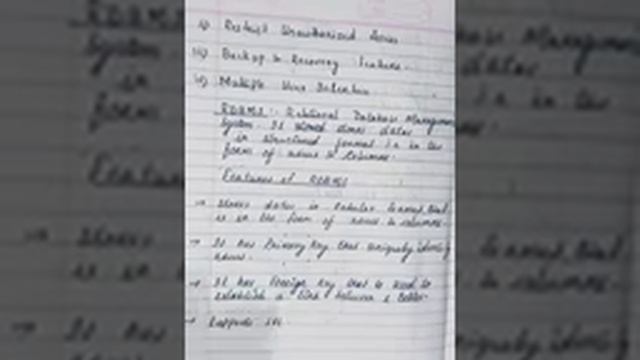 ii) Restrict Unauthorized Access
iii) Backup & Recovery Feature.
iv) Multiple User Interface
RDBMS :- Relational Database Management
System. It stored data
in structured format i.e in the
form of rows & columns.
Features of RDBMS
→ Stores data in tabular format,
is in the form of rows & columns.
→ It has Primary key that uniquely identify
rows.
→ It has foreign key that is used to
establish a link between 2 tables.
→ Supports SQL